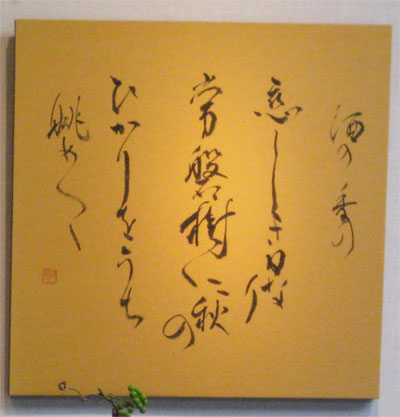 酒の香の
恋しき日なり
常磐樹に秋の
ひかりをうち
眺めつゝ